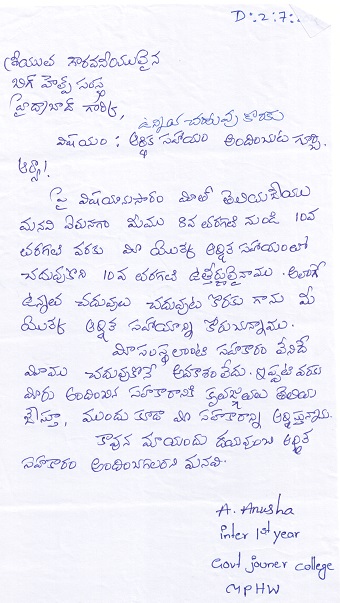 D:2:7:.
శ్రీయుత గౌరవనీయులైన
బిగ్ హెల్ప్ సంస్థ
హైద్రాబాద్ గారికి,
ఉన్నత చదువు కొరకు
విషయం : ఆర్థిక సహాయం అందించుట గూర్చి.
ఆర్యా!
పై విషయానుసారం మీతో తెలియజేయు
మనవి ఏమనగా మేము 8వ తరగతి నుండి 10వ
తరగతి వరకు మీ యొక్క ఆర్థిక సహాయంలో
చదువుకొని 10వ తరగతి ఉత్తీర్ణులైనాము. అలాగే
ఉన్నత చదువులు చదువుట కొరకు గాను మీ
యొక్క ఆర్థిక సహాయాన్ని కోరుచున్నాము.
మీ సంస్థ లాంటి సహకారం లేనిదే
మేము చదువుకొనే అవకాశం లేదు. ఇప్పటి వరకు
మీరు అందించిన సహకారానికి కృతజ్ఞతలు తెలియ
జేస్తూ, ముందు కూడా మీ సహకారాన్ని ఆశిస్తున్నాను.
కావున మాయందు దయవుంచి ఆర్థిక
సహకారం అందించగలరని మనవి.
A. Anusha
inter 1st year
Govt jouner college
MPHW